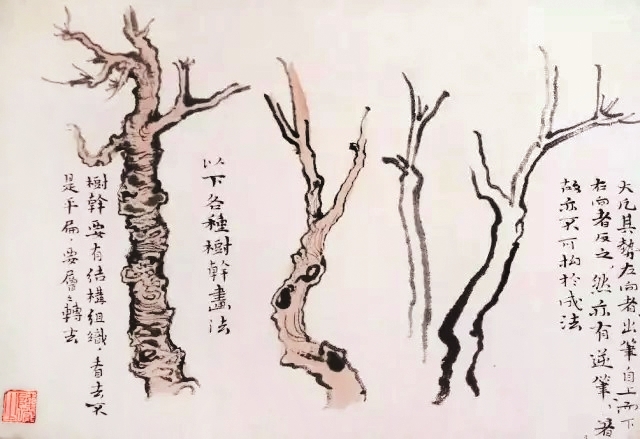 大凡其勢左向者出筆自上而下
右向者反之，然亦有逆筆、者
故亦不可拘於成法
以下各種樹幹畫法
樹幹要有結構組織，看去不
是平扁，要層々轉去